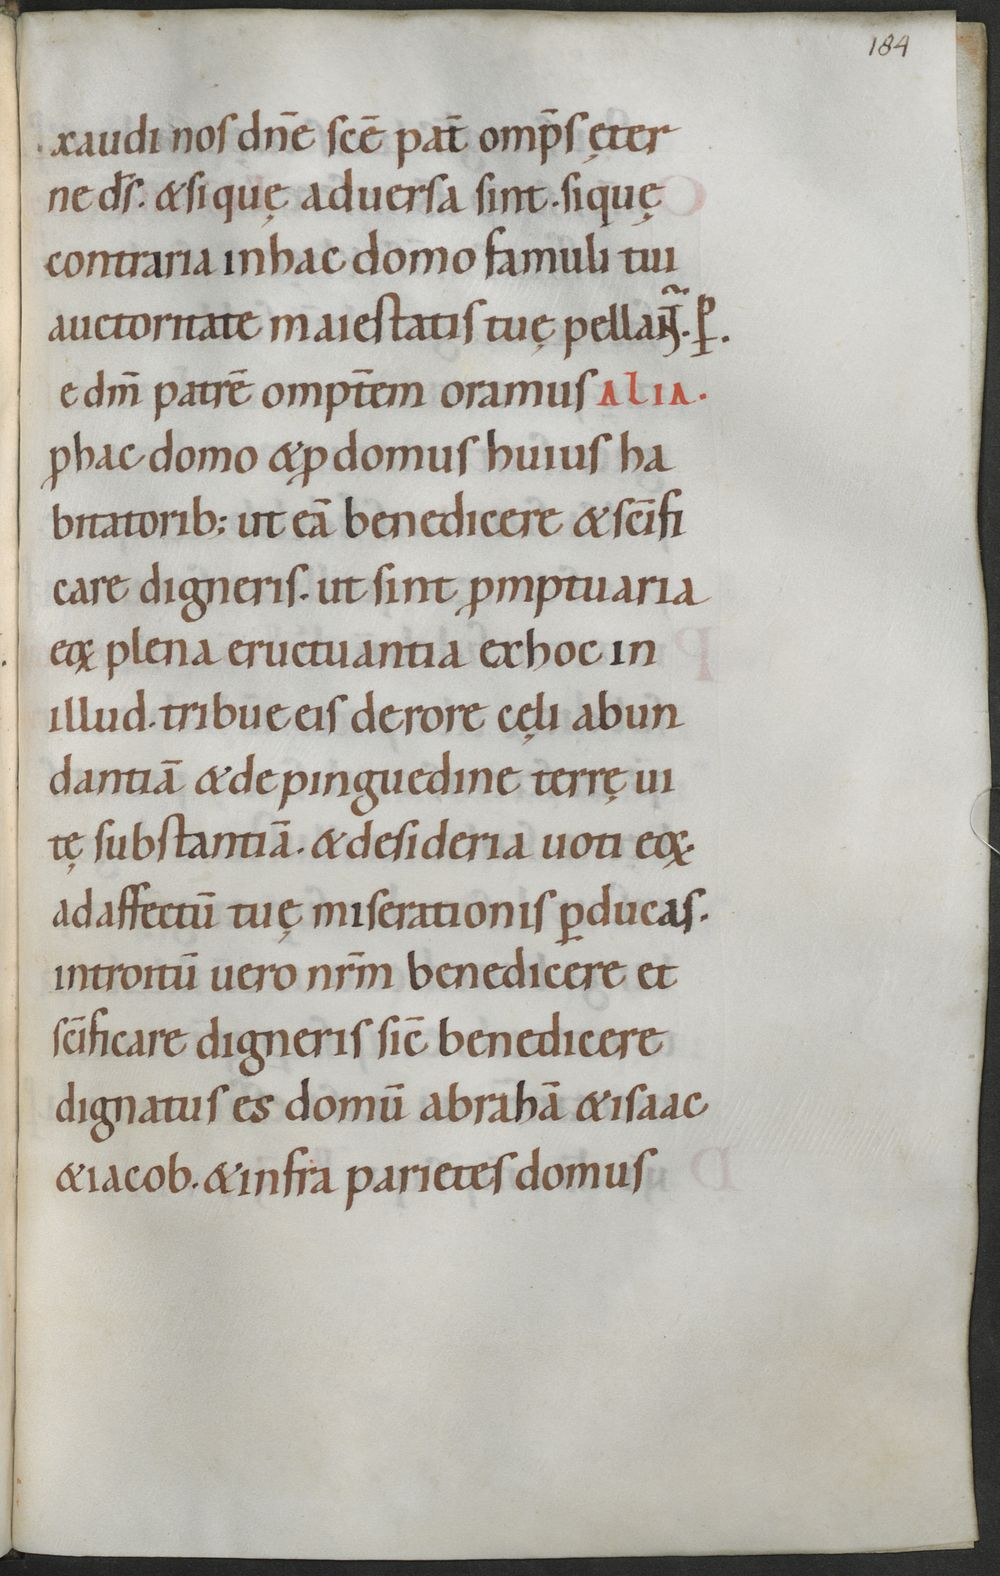 184
xaudi nos dn̄e sc̄e pat̄ omp̄s ęter
ne d̄s. & si quę aduersa sint. si quę
contraria in hac domo famuli tui
auctoritate maiestatis tuę pellant̃. ꝑ.
e dm̄ patrē omp̄tem oramus ALIA.
ꝓ hac domo & ꝓ domus huius ha
bitatorib; ut eā benedicere & sc̄ifi
care digneris. ut sint ꝓmptuaria
eoꝝ plena eructuantia ex hoc in
illud. tribue eis de rore cęli abun
dantiā & de pinguedine terrę ui
tę substantiā. & desideria uoti eoꝝ.
ad affectū tuę miserationis ꝑducas.
introitū uero nr̄m benedicere et
sc̄ificare digneris sic̄ benedicere
dignatus es domū abrahā & isaac
& iacob. & infra parietes domus